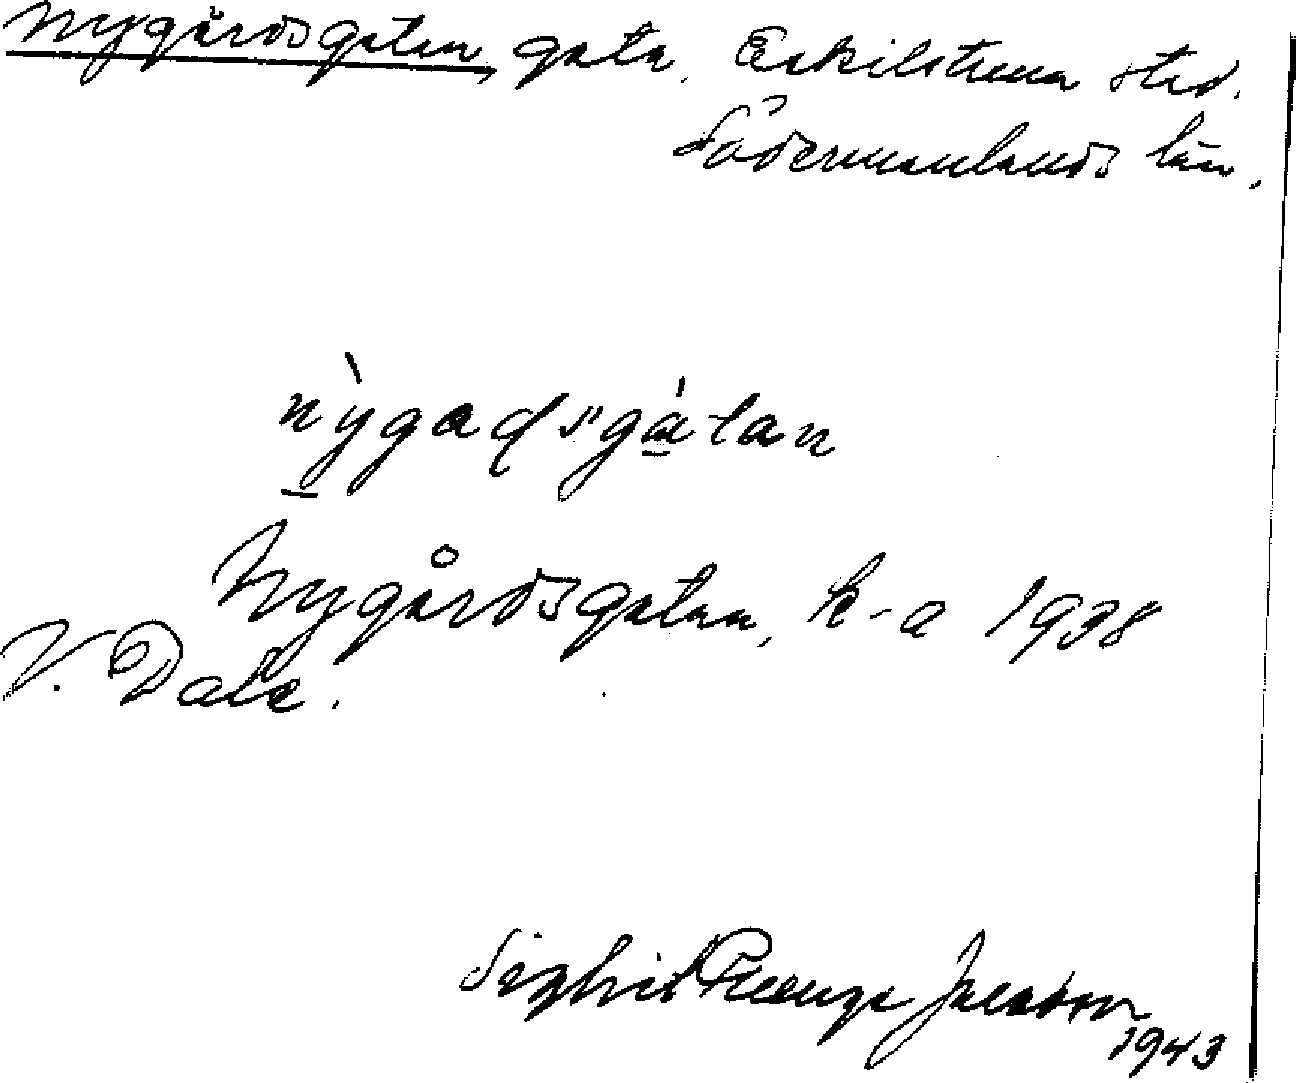 Nygårdsgatan, gata, Eskilstuna stad.
Södermanlands län.
nỳgadsgátan
Nygårdsgatan, k-a 1938
V. Dala.
Sigfrid Jacobson
1943